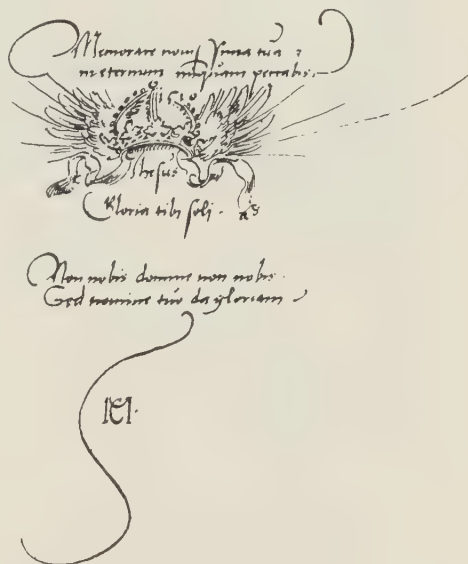 Memorare novissima tua
in eternum nunquam peccabis.
Ihesus
Gloria tibi soli.
Non nobis domine non nobis.
Sed nomine tuo da gloriam